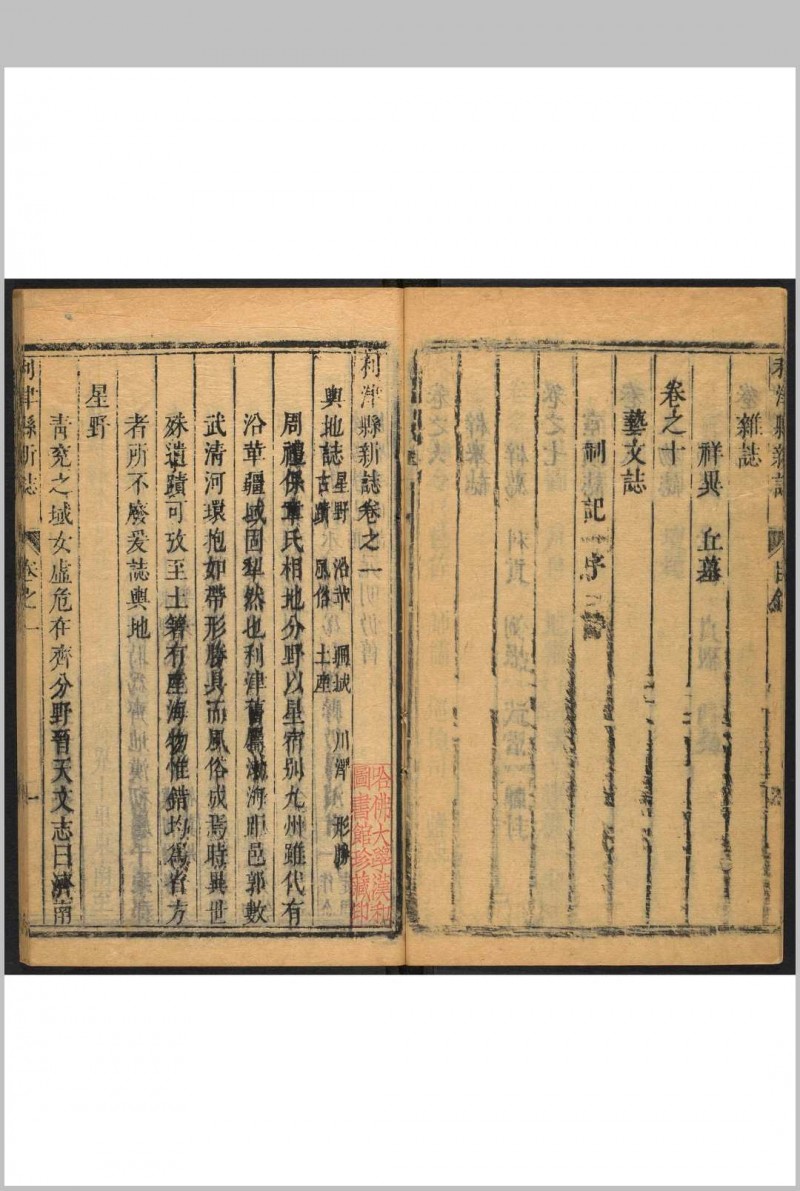 利津縣新誌 目錄
雜誌
祥異 丘墓
卷之十
藝文誌
制 記 序
利津縣新誌卷之一
輿地誌 星野 沿革 疆域 川瀆 形勝
古蹟 風俗 土產
周禮保章氏相地分野以星宿别九州雖代有
沿革疆域固犁然也利津舊屬渤海距邑郭數
武清河環抱如帶形勝具而風俗成焉時異世
殊遺蹟可攷至土著有產海物惟錯均爲省方
者所不廢爰誌輿地
星野
靑兗之域女虛危在齊分野晉天文志曰濟南
利津縣新誌 卷之一 一
哈佛大學漢和
圖書館珍藏印